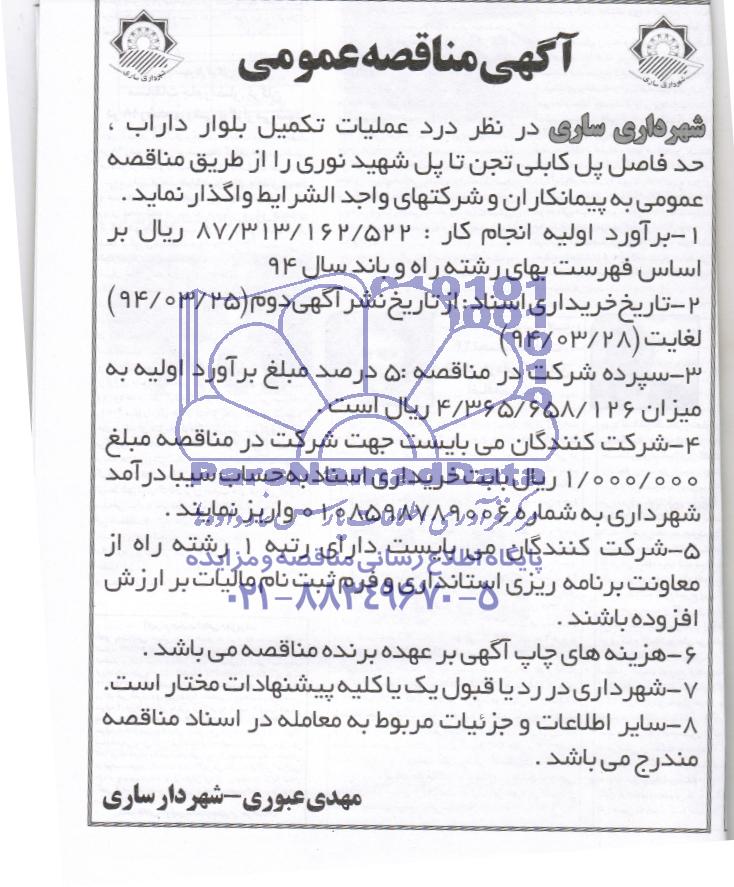 آگهی مناقصه عمومی
شهرداری ساری
شهرداری ساری
شهرداری ساری در نظر درد عملیات تکمیل بلوار داراب ،
حد فاصل پل کابلی تجن تا پل شهید نوری را از طریق مناقصه
عمومی به پیمانکاران و شرکتهای واجد الشرایط واگذار نماید .
۱-برآورد اولیه انجام کار : ۸۷/۳۱۳/۱۶۲/۵۲۲ ریال بر
اساس فهرست بهای رشته راه و باند سال ۹۴
۲-تاریخ خریداری اسناد: از تاریخ نشر آگهی دوم (۹۴/۰۳/۲۵)
لغایت (۹۴/۰۳/۲۸)
۳-سپرده شرکت در مناقصه :۵ درصد مبلغ برآورد اولیه به
میزان ۴/۳۶۵/۶۵۸/۱۲۶ ریال است .
۴-شرکت کنندگان می بایست جهت شرکت در مناقصه مبلغ
۱/۰۰۰/۰۰۰ ریال بابت خریداری اسناد به حساب سیبا درآمد
شهرداری به شماره ۰۱۰۸۵۹۸۷۸۹۰۰۶ واریز نمایند .
۵-شرکت کنندگان می بایست دارای رتبه ۱ رشته راه از
معاونت برنامه ریزی استانداری و فرم ثبت نام مالیات بر ارزش
افزوده باشند .
۶-هزینه های چاپ آگهی بر عهده برنده مناقصه می باشد .
۷-شهرداری در رد یا قبول یک یا کلیه پیشنهادات مختار است.
۸-سایر اطلاعات و جزئیات مربوط به معامله در اسناد مناقصه
مندرج می باشد .
مهدی عبوری-شهردار ساری
ParsNamadData
پایگاه اطلاع رسانی مناقصه و مزایده
۰۲۱-۸۸۳۴۹۶۷۰-۵